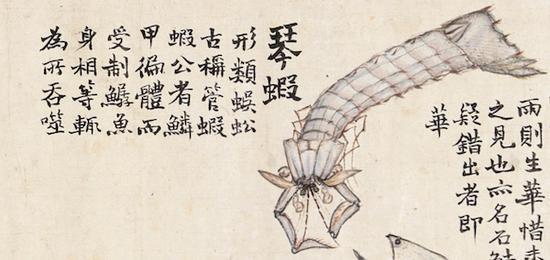 雨則生華惜未
之見也亦名石
疑錯出者即
華
琴蝦
形類蜈蚣
古稱管蝦
蝦公者鱗
甲徧體而
受制鱘魚
身相等輒
為所吞噬